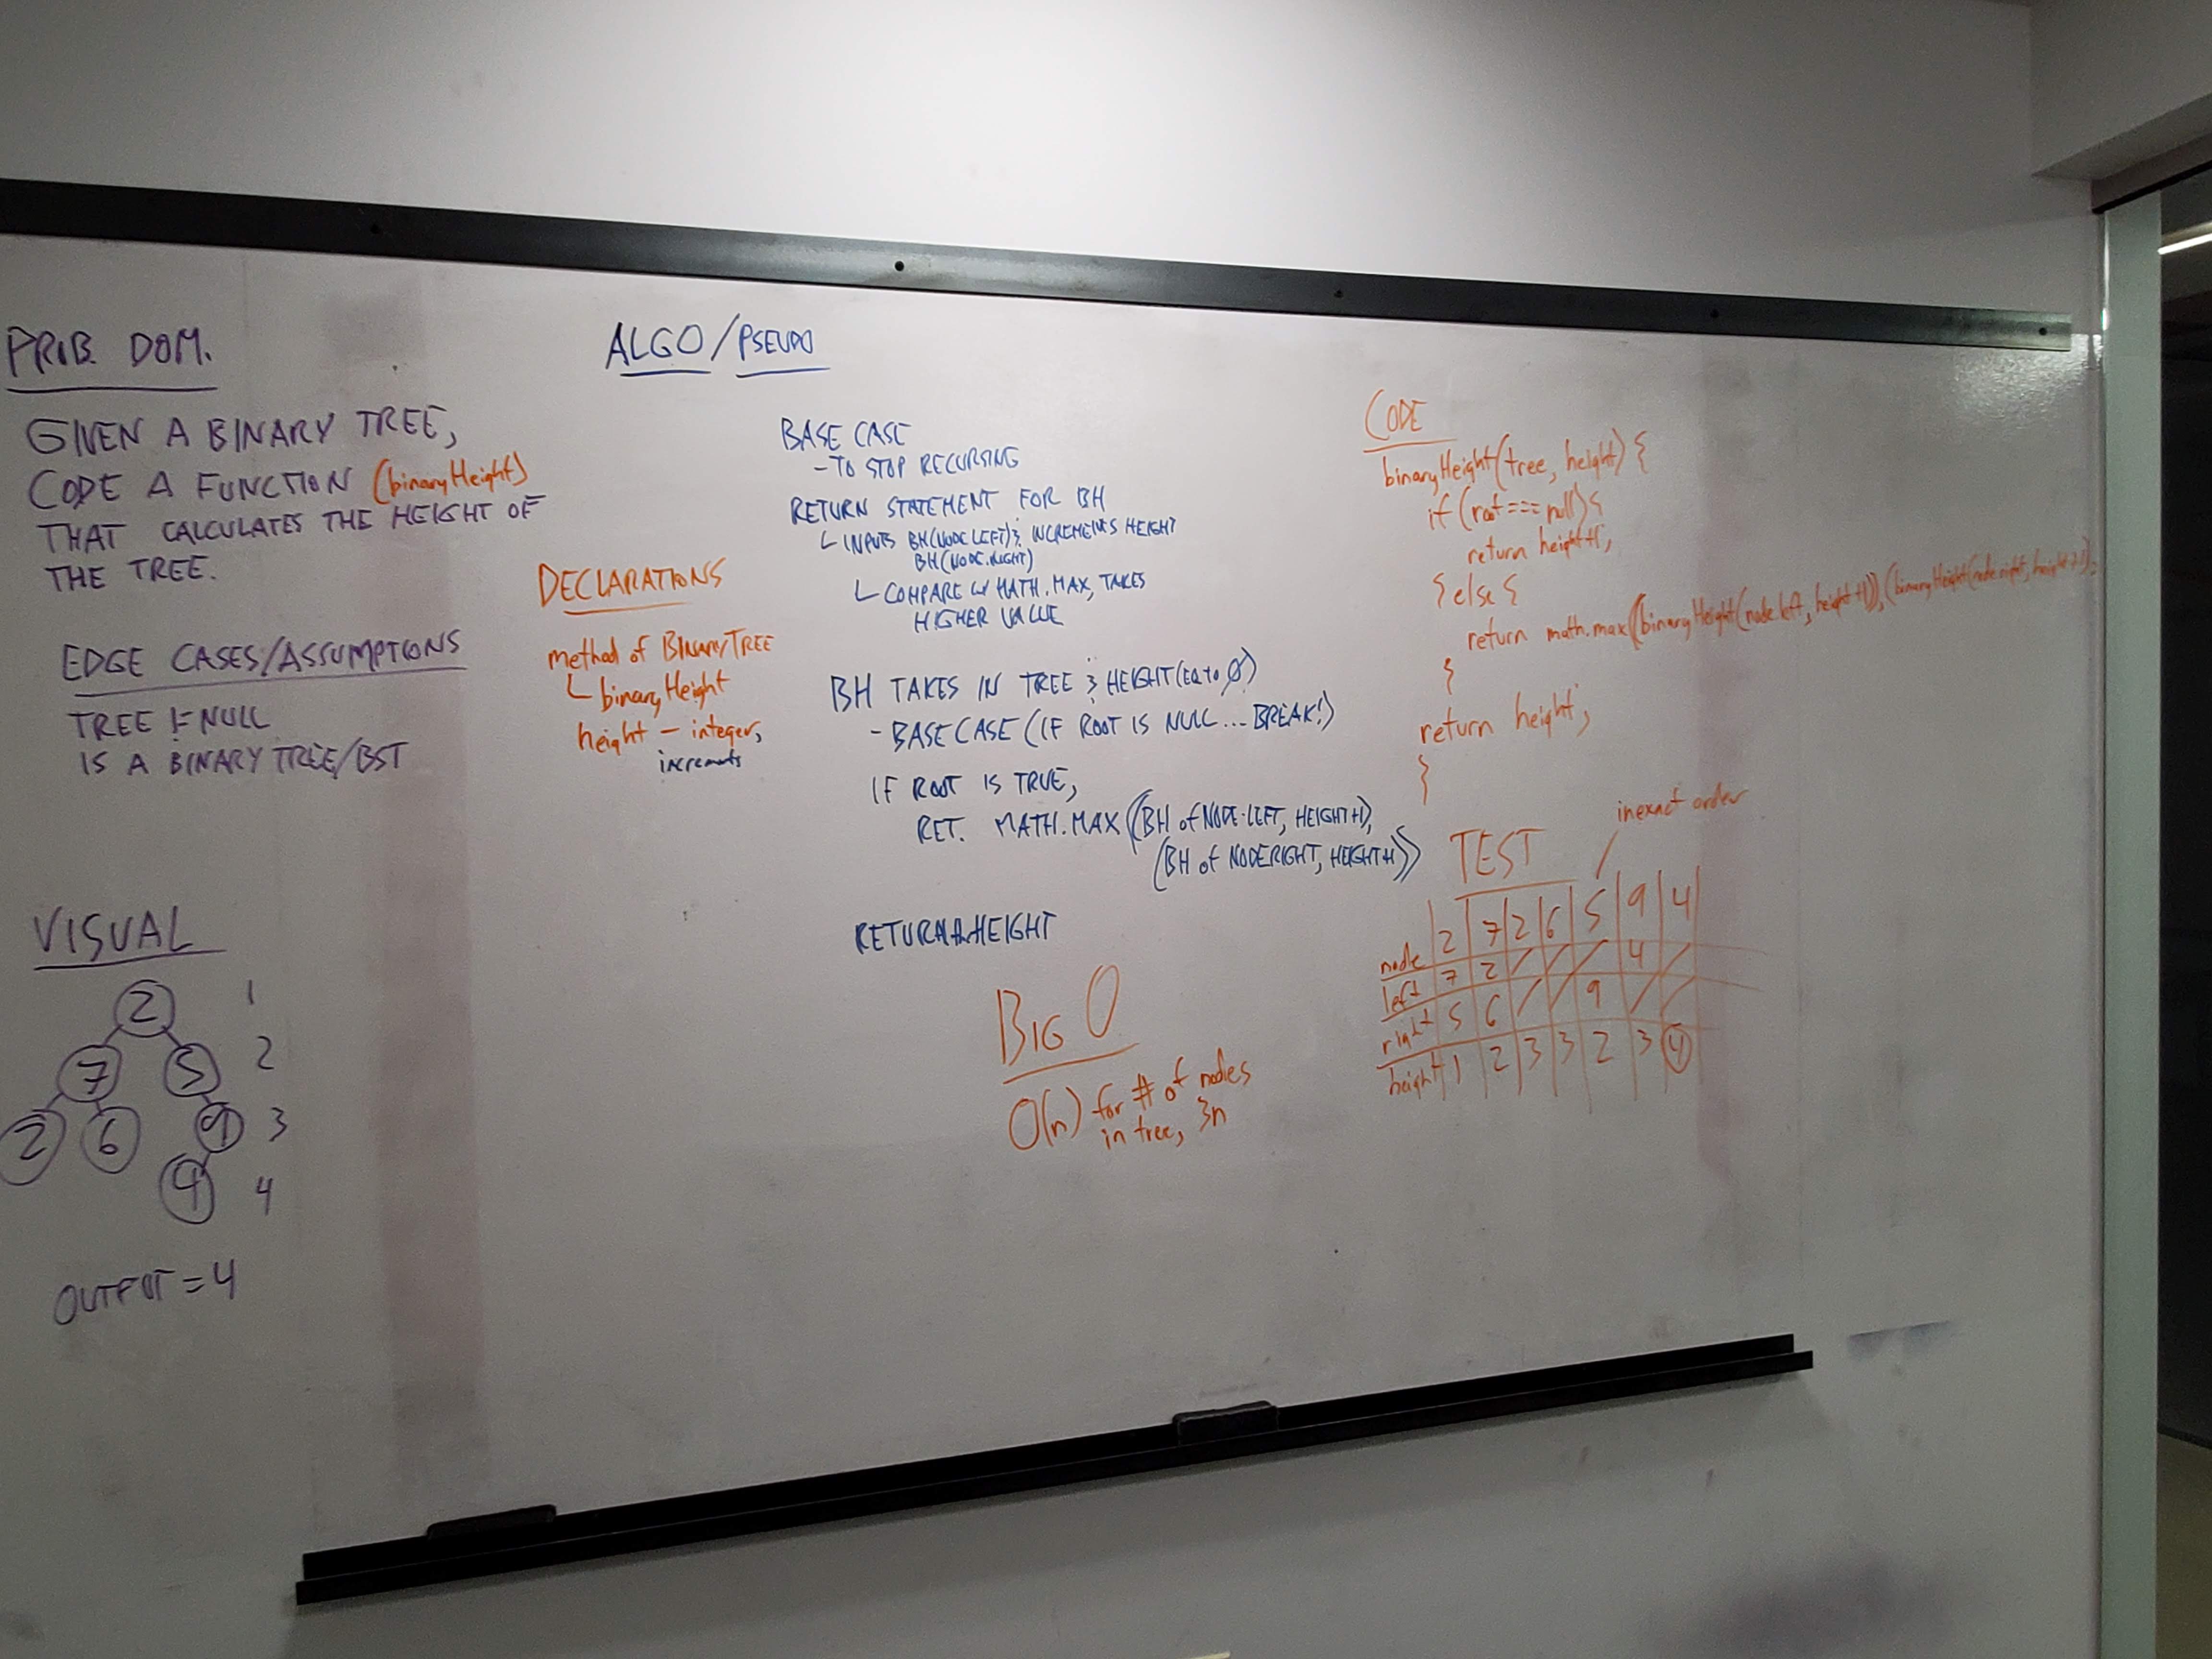 PROB. DOM.
GIVEN A BINARY TREE,
CODE A FUNCTION (binaryHeight)
THAT CALCULATES THE HEIGHT OF
THE TREE.
EDGE CASES/ASSUMPTIONS
TREE != NULL
IS A BINARY TREE/BST
VISUAL
2 1
7 5 2
2 6 9 3
4 4
OUTPUT = 4
DECLARATIONS
method of BINARYTREE
binaryHeight
height - integer,
increments
ALGO/PSEUDO
BASE CASE
- TO STOP RECURSING
RETURN STATEMENT FOR BH
INPUTS BH(NODE.LEFT) & INCREMENTS HEIGHT
BH(NODE.RIGHT)
COMPARE W/ MATH.MAX, TAKES
HIGHER VALUE
BH TAKES IN TREE & HEIGHT (EQ TO Ø)
- BASE CASE (IF ROOT IS NULL... BREAK!)
IF ROOT IS TRUE,
RET. MATH.MAX((BH of NODE.LEFT, HEIGHT+1),
(BH of NODERIGHT, HEIGHT+1))
RETURN HEIGHT
BIG O
O(n) for # of nodes
in tree, 3n
CODE
binaryHeight(tree, height) {
if (root === null) {
return height+1;
} else {
return math.max((binaryHeight(node.left, height+1)), (binaryHeight(node.right, height+1);
}
return height;
}
inexact order
TEST
node 2 7 2 6 5 9 4
left 7 2 / / / 4 /
right 5 6 / / 9 / /
height 1 2 3 3 2 3 4